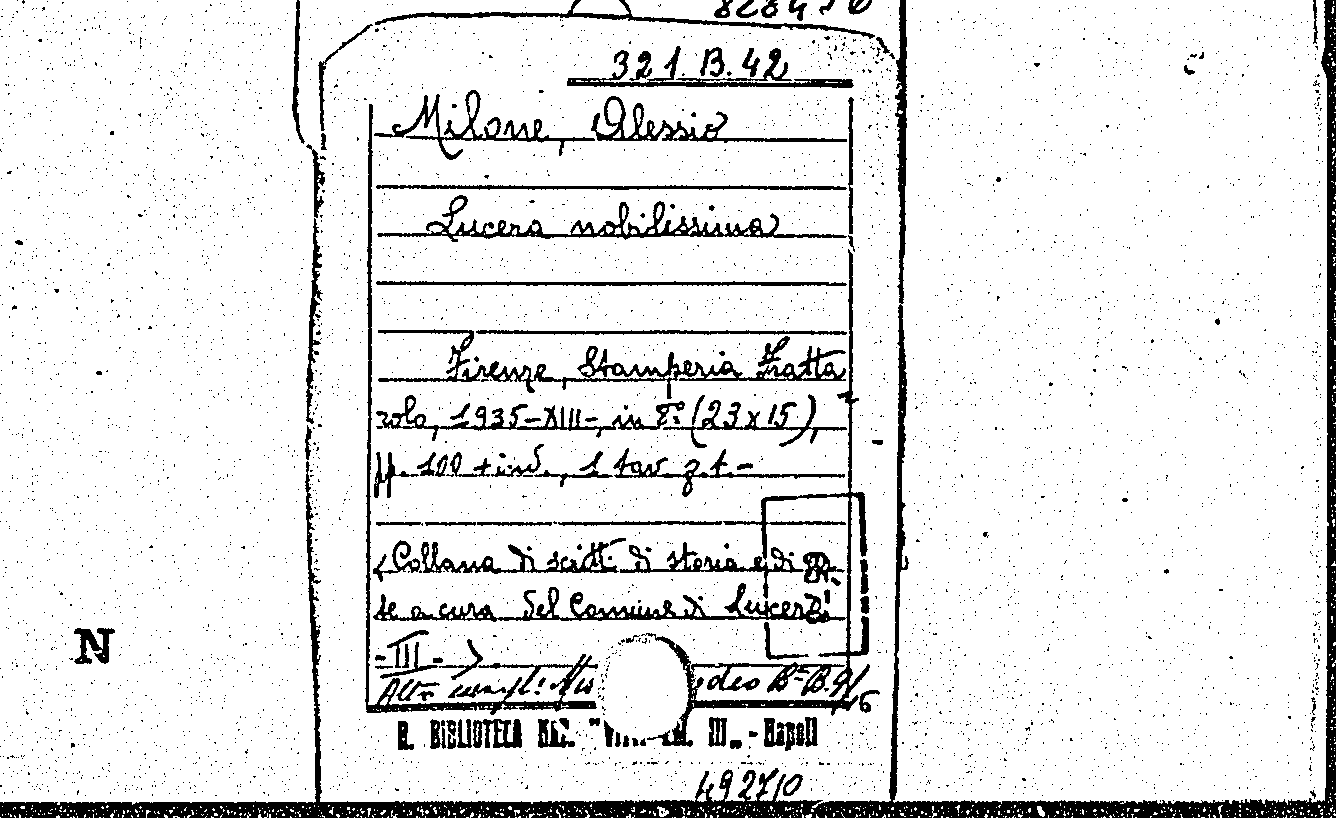 321 B. 42
Milone, Alessio
Lucera nobilissima
Firenze, Stamperia Fratta
rolo, 1935-XIII-, in 8° (23x15),
pp. 100 + ind., 1 tav. f.t. -
(Collana di scritti di storia e di
te a cura del Comune di Lucera
- III - )
Altro
N
R. BIBLIOTECA NAZ. III„ - Napoli
492710